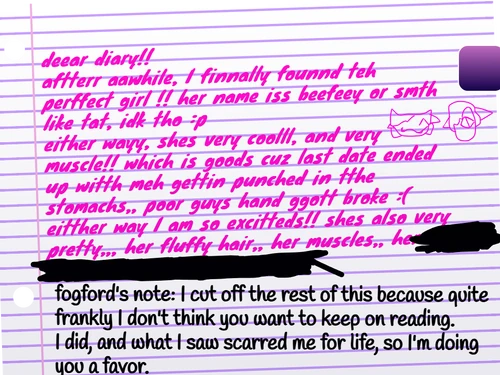 deear diary!!
aftterr aawhile, I finnally founnd teh
perffect girl !! her name iss beefeey or smth
like tat, idk tho :p
either wayy, shes very coolll, and very
muscle!! which is goods cuz last date ended
up witth meh gettin punched in tthe
stomachs,, poor guys hand ggott broke :(
eitther way I am so excitteds!! shes also very
pretty,,, her fluffy hair,, her muscles,, he
fogford's note: I cut off the rest of this because quite
frankly I don't think you want to keep on reading.
I did, and what I saw scarred me for life, so I'm doing
you a favor.